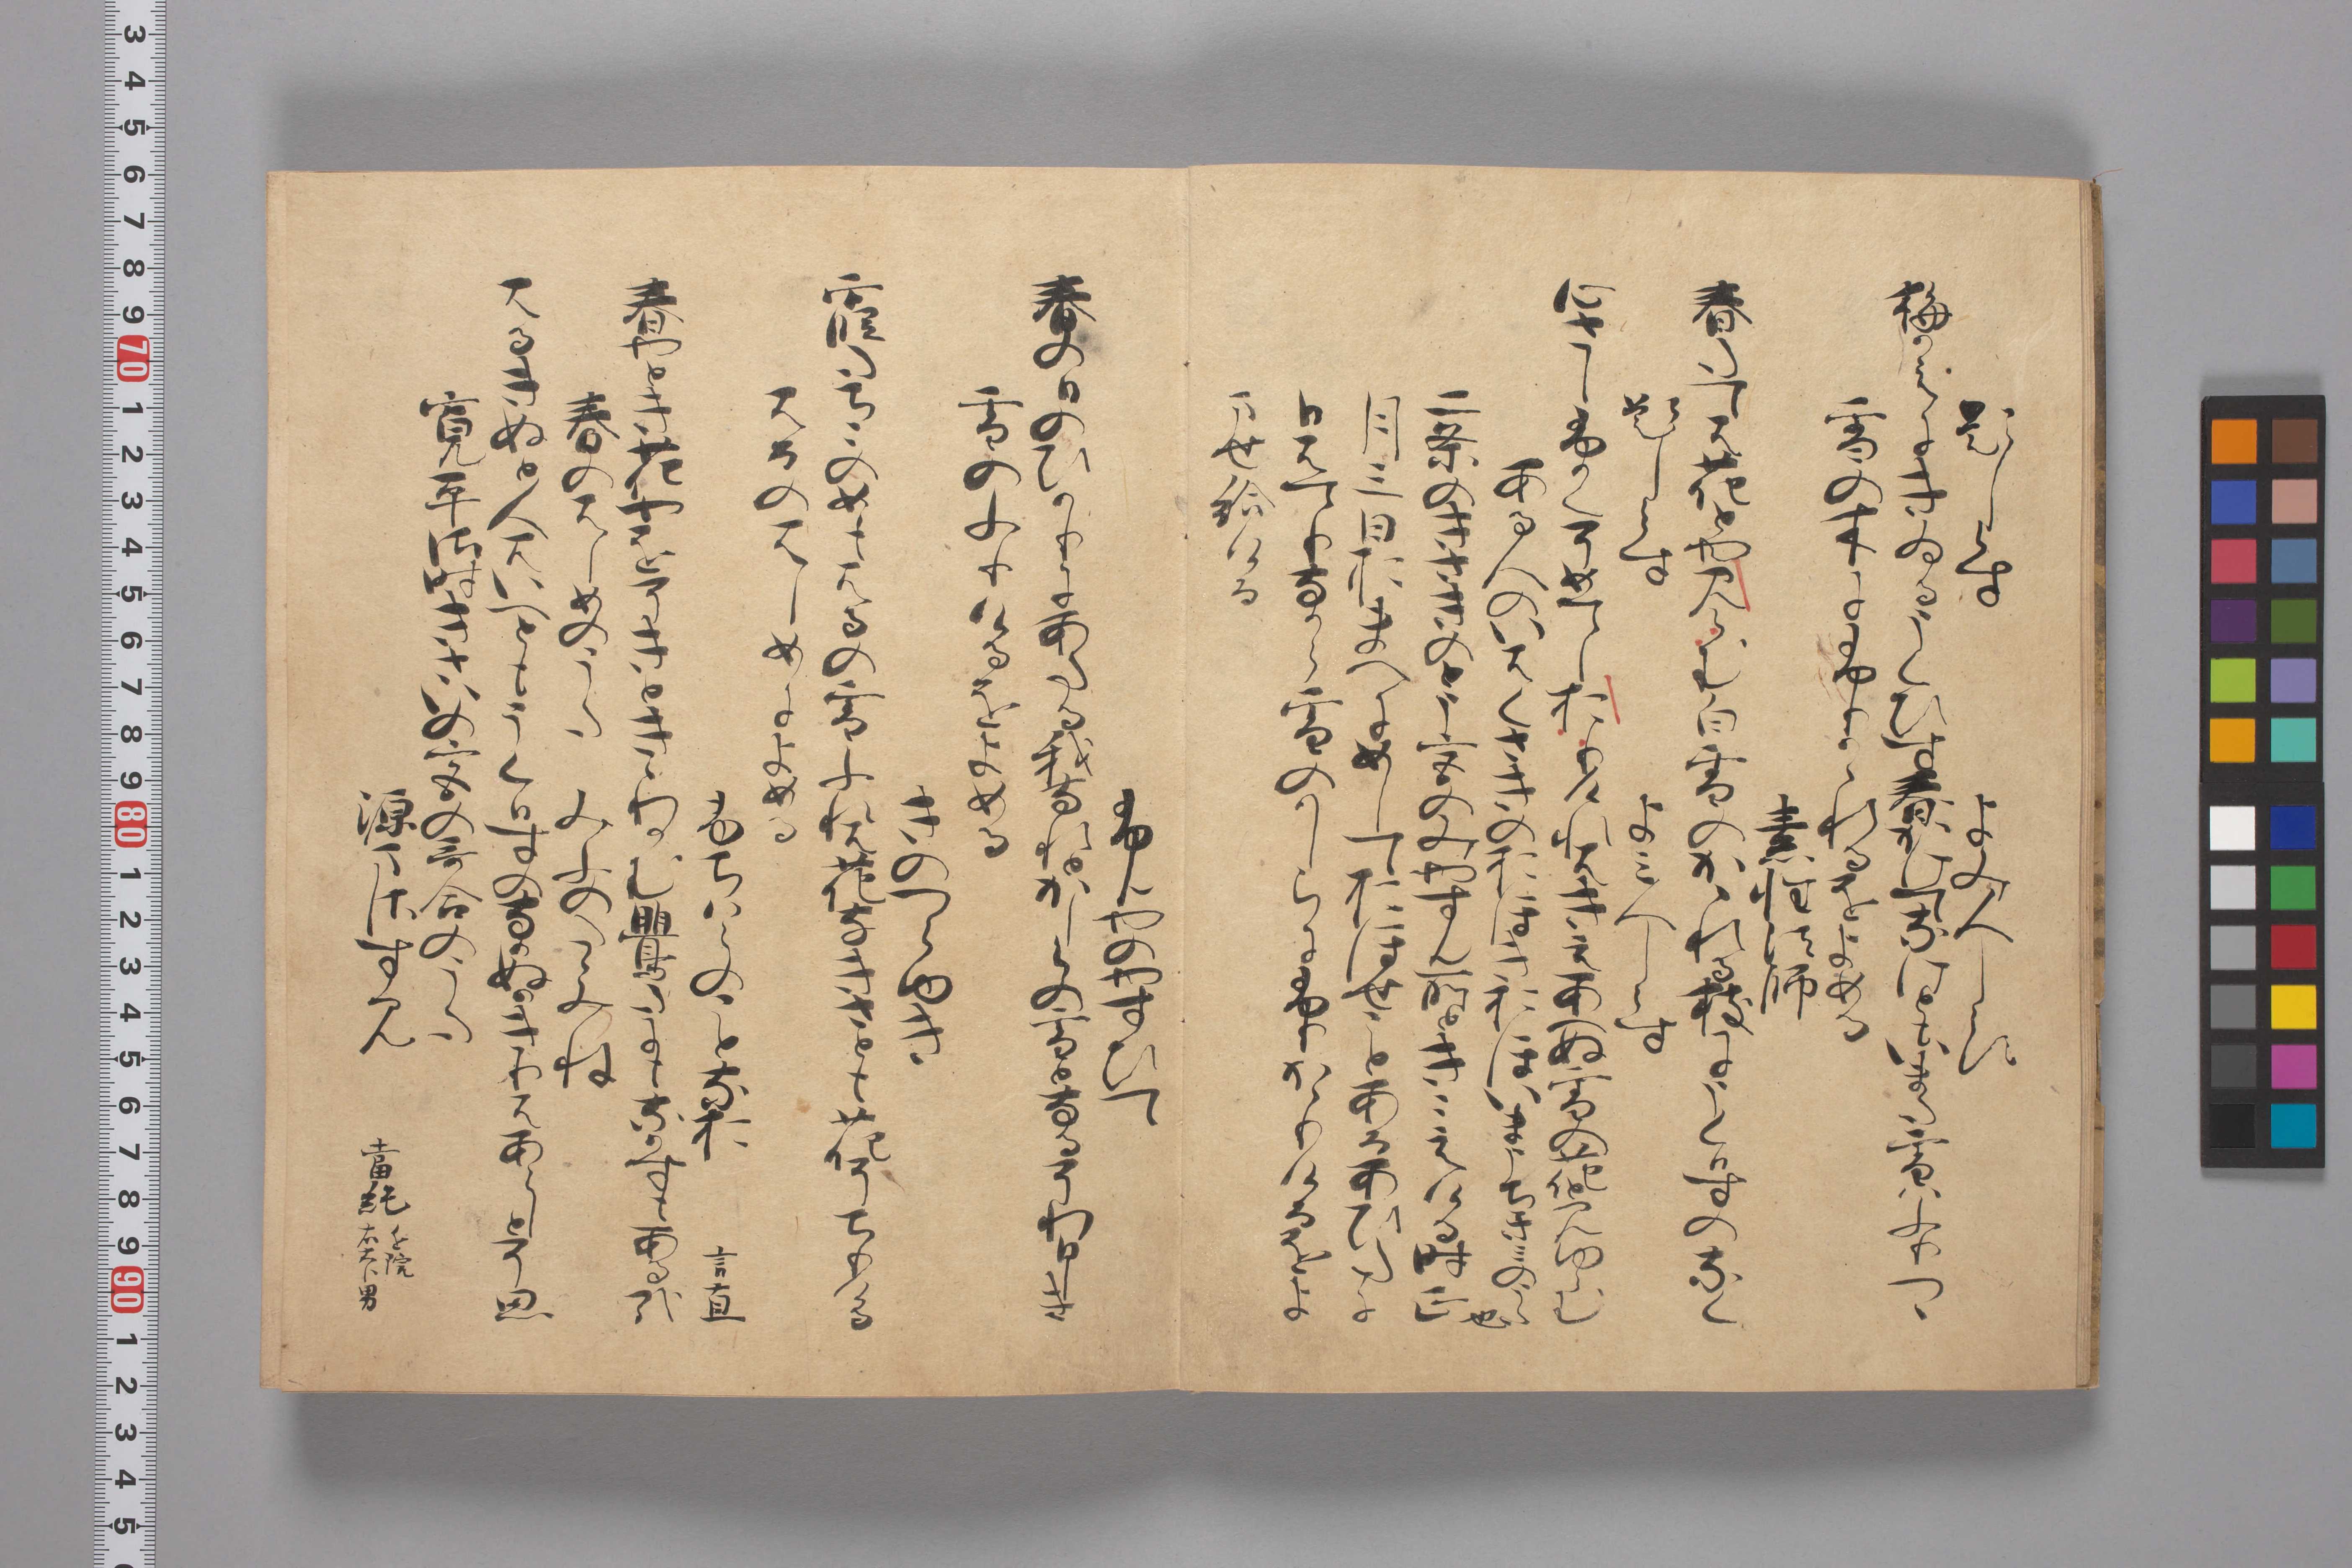 題しらす　よみ人しらす
梅かえにきゐるうくひす春かけてなけともいまた雪はふりつゝ
雪の木にふりかゝれるをよめる
素性法師
春たては花とや見らむ白雪のかゝれる枝にうくひすのなく
題しらす　よみ人しらす
心さしふかくそめてし折けれはきえあへぬ雪の花と見ゆらむ
ある人のいはくさきのおほきおほいまうちきみの哥也
二条のきさきのとう宮のみやすん所ときこえける時
正月三日おまへにめしておほせことあるあひたに
日はてりなから雪のかしらにふりかゝりけるを
よませ給ける
ふんやのやすひて
春の日のひかりにあたる我なれとかしらの雪となるそわひしき
雪のふりけるをよめる
きのつらゆき
霞たちこのめもはるの雪ふれは花なきさとも花そちりける
はるのはしめによめる
ふちはらのことなを　言直
春やとき花やをそきときゝわかむ鶯たにもなかすもあるかな
春のはしめのうた　みふのたゝみね
はるきぬと人はいへともうくひすのなかぬかきりはあらしとそ思
寛平御時きさいの宮の哥合のうた
源まさすみ　當純